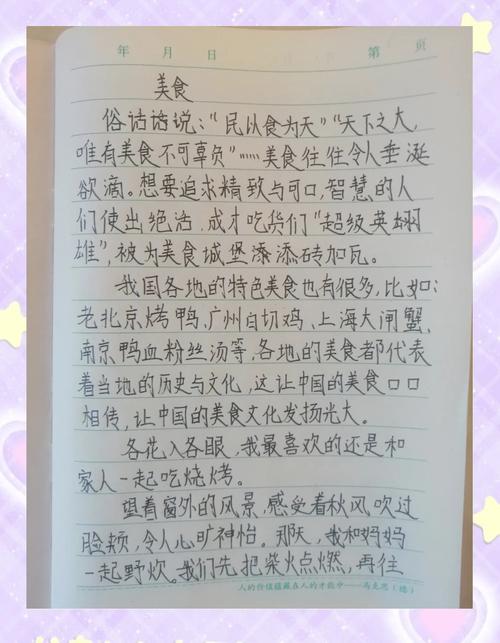 年 月 日 第 页
美食
俗话话说:“民以食为天”“天下之大,
唯有美食不可辜负”……美食往往令人垂涎
欲滴。想要追求精致与可口,智慧的人
们使出绝活,成才吃货们“超级英
雄”,被为美食城堡添添砖加瓦。
我国各地的特色美食也有很多,比如:
老北京烤鸭、广州白切鸡、上海大闸蟹、
南京鸭血粉丝汤等,各地的美食都代表
着当地的历史与文化,这让中国的美食口口
相传,让中国的美食文化发扬光大。
各花入各眼,我最喜欢的还是和
家人一起吃烧烤。
望着窗外的风景,感受着秋风吹过
脸颊,令人心旷神怡。那天,我和妈妈
一起野炊。我们先把柴火点燃,再往
人的价值蕴藏在人的才能中——马克思(德)